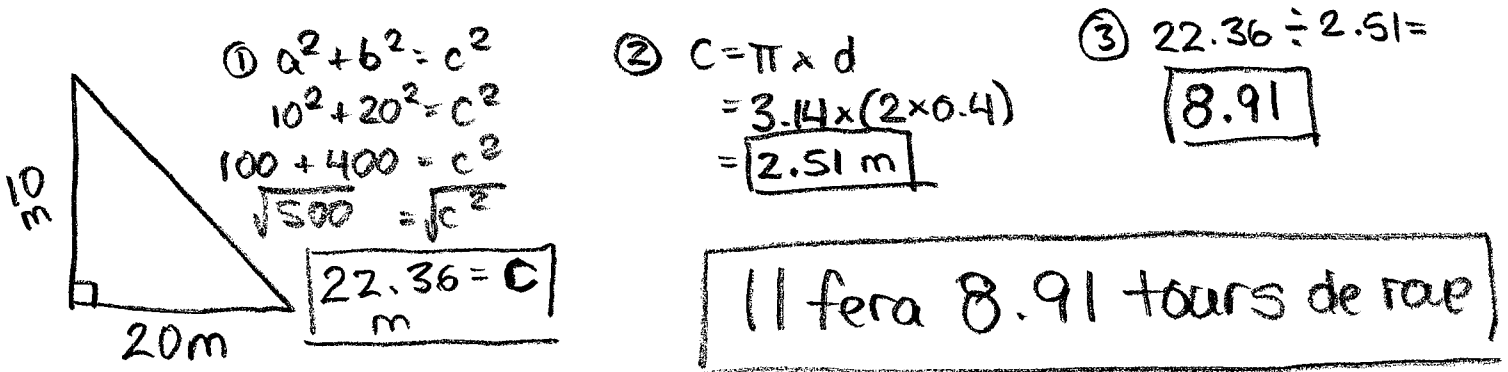 ① a²+b²=c²
10²+20²=c²
100+400=c²
√500 =√c²
22.36=c
m
10
m
20m
② C=π×d
=3.14×(2×0.4)
=2.51 m
③ 22.36÷2.51=
8.91
Il fera 8.91 tours de roue